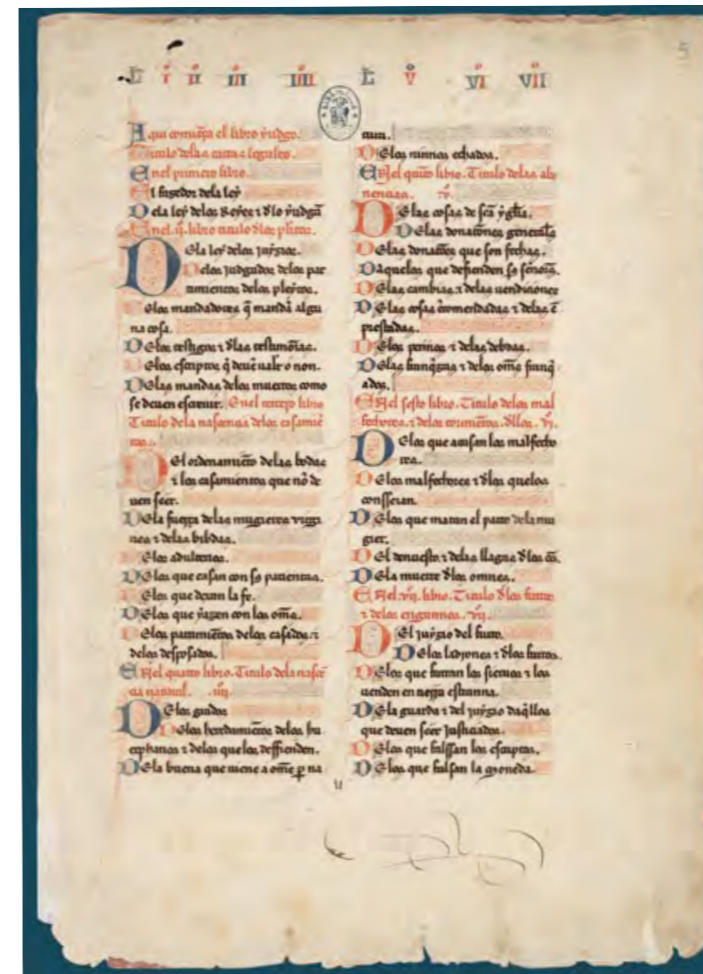 5
L I II III IIII L V VI VII
Aqui comiença el libro yudgo.
Titulo dela
En el primero libro.
El fazedor dela ley
Dela ley delos Reyes τ dlo yudgã
En el .ij. libro titulo dlos pleitos.
Dela ley delos juyzios.
Delos judgados delos par
timientos delos pleytos.
Delos mandadores q̃ mandã algu
na cosa.
Delos testigos τ dlas testimonias.
Delos escriptos q̃ deuẽ ualer o non.
Delas mandas delos muertos como
se deuen escreuir. En el tercero libro
Titulo dela nascença delos casamiẽ
tos.
Del ordenamiẽto delas bodas
τ los casamientos que nõ de
uen seer.
Dela fuerça delas mugieres uirgi
nes τ delas bibdas.
Delos adulterios.
Delos que casan con so parientas.
Delos que dexan la fe.
Delos que yazen con los oms̃.
Delos partimiẽtos delos casados τ
delos desposados.
En el quarto libro. Titulo dela nascẽ
cia natural. .iiij.
Delos grados
Delos heredamiẽtos delos hu
erphanos τ delos que los deffienden.
Dela buena que uiene a om̃e p̱ na
tura.
Delos ninnos echados.
En el quĩto libro. Titulo delas abe
nencias. .v.
Delas cosas de scã yglia.
Delas donaciones generales
Delas donaciões que son fechas.
Daquelos que defienden so senorio.
Delas cambias τ delas uendiciones
Delas cosas ẽcomendadas τ delas ẽ
prestadas.
Delos pennos τ delas debdas.
Delas franq̃zas τ delos oms̃ franq̃
ados.
En el sesto libro. Titulo delos mal
fechores. τ delos tormẽtos. dllos. .vj.
Delos que acusan los malfecho
res.
Delos malfechores τ dlos quelos
consseian.
Delos que matan el parto dela mu
gier.
Del denuesto τ delas llagas dlos
Dela muerte dlos omnes.
En el .vij. libro. Titulo dlos furtos
τ delos engannos. .vij.
Del juyzio del furto.
Delos ladrones τ dlos furtos.
Delos que furtan los sieruos τ los
uenden en tierra estranna.
Dela guarda τ del juyzio daq̃llos
que deuen seer justiciados.
Delos que falssan los escriptos.
Delos que falsan la moneda.